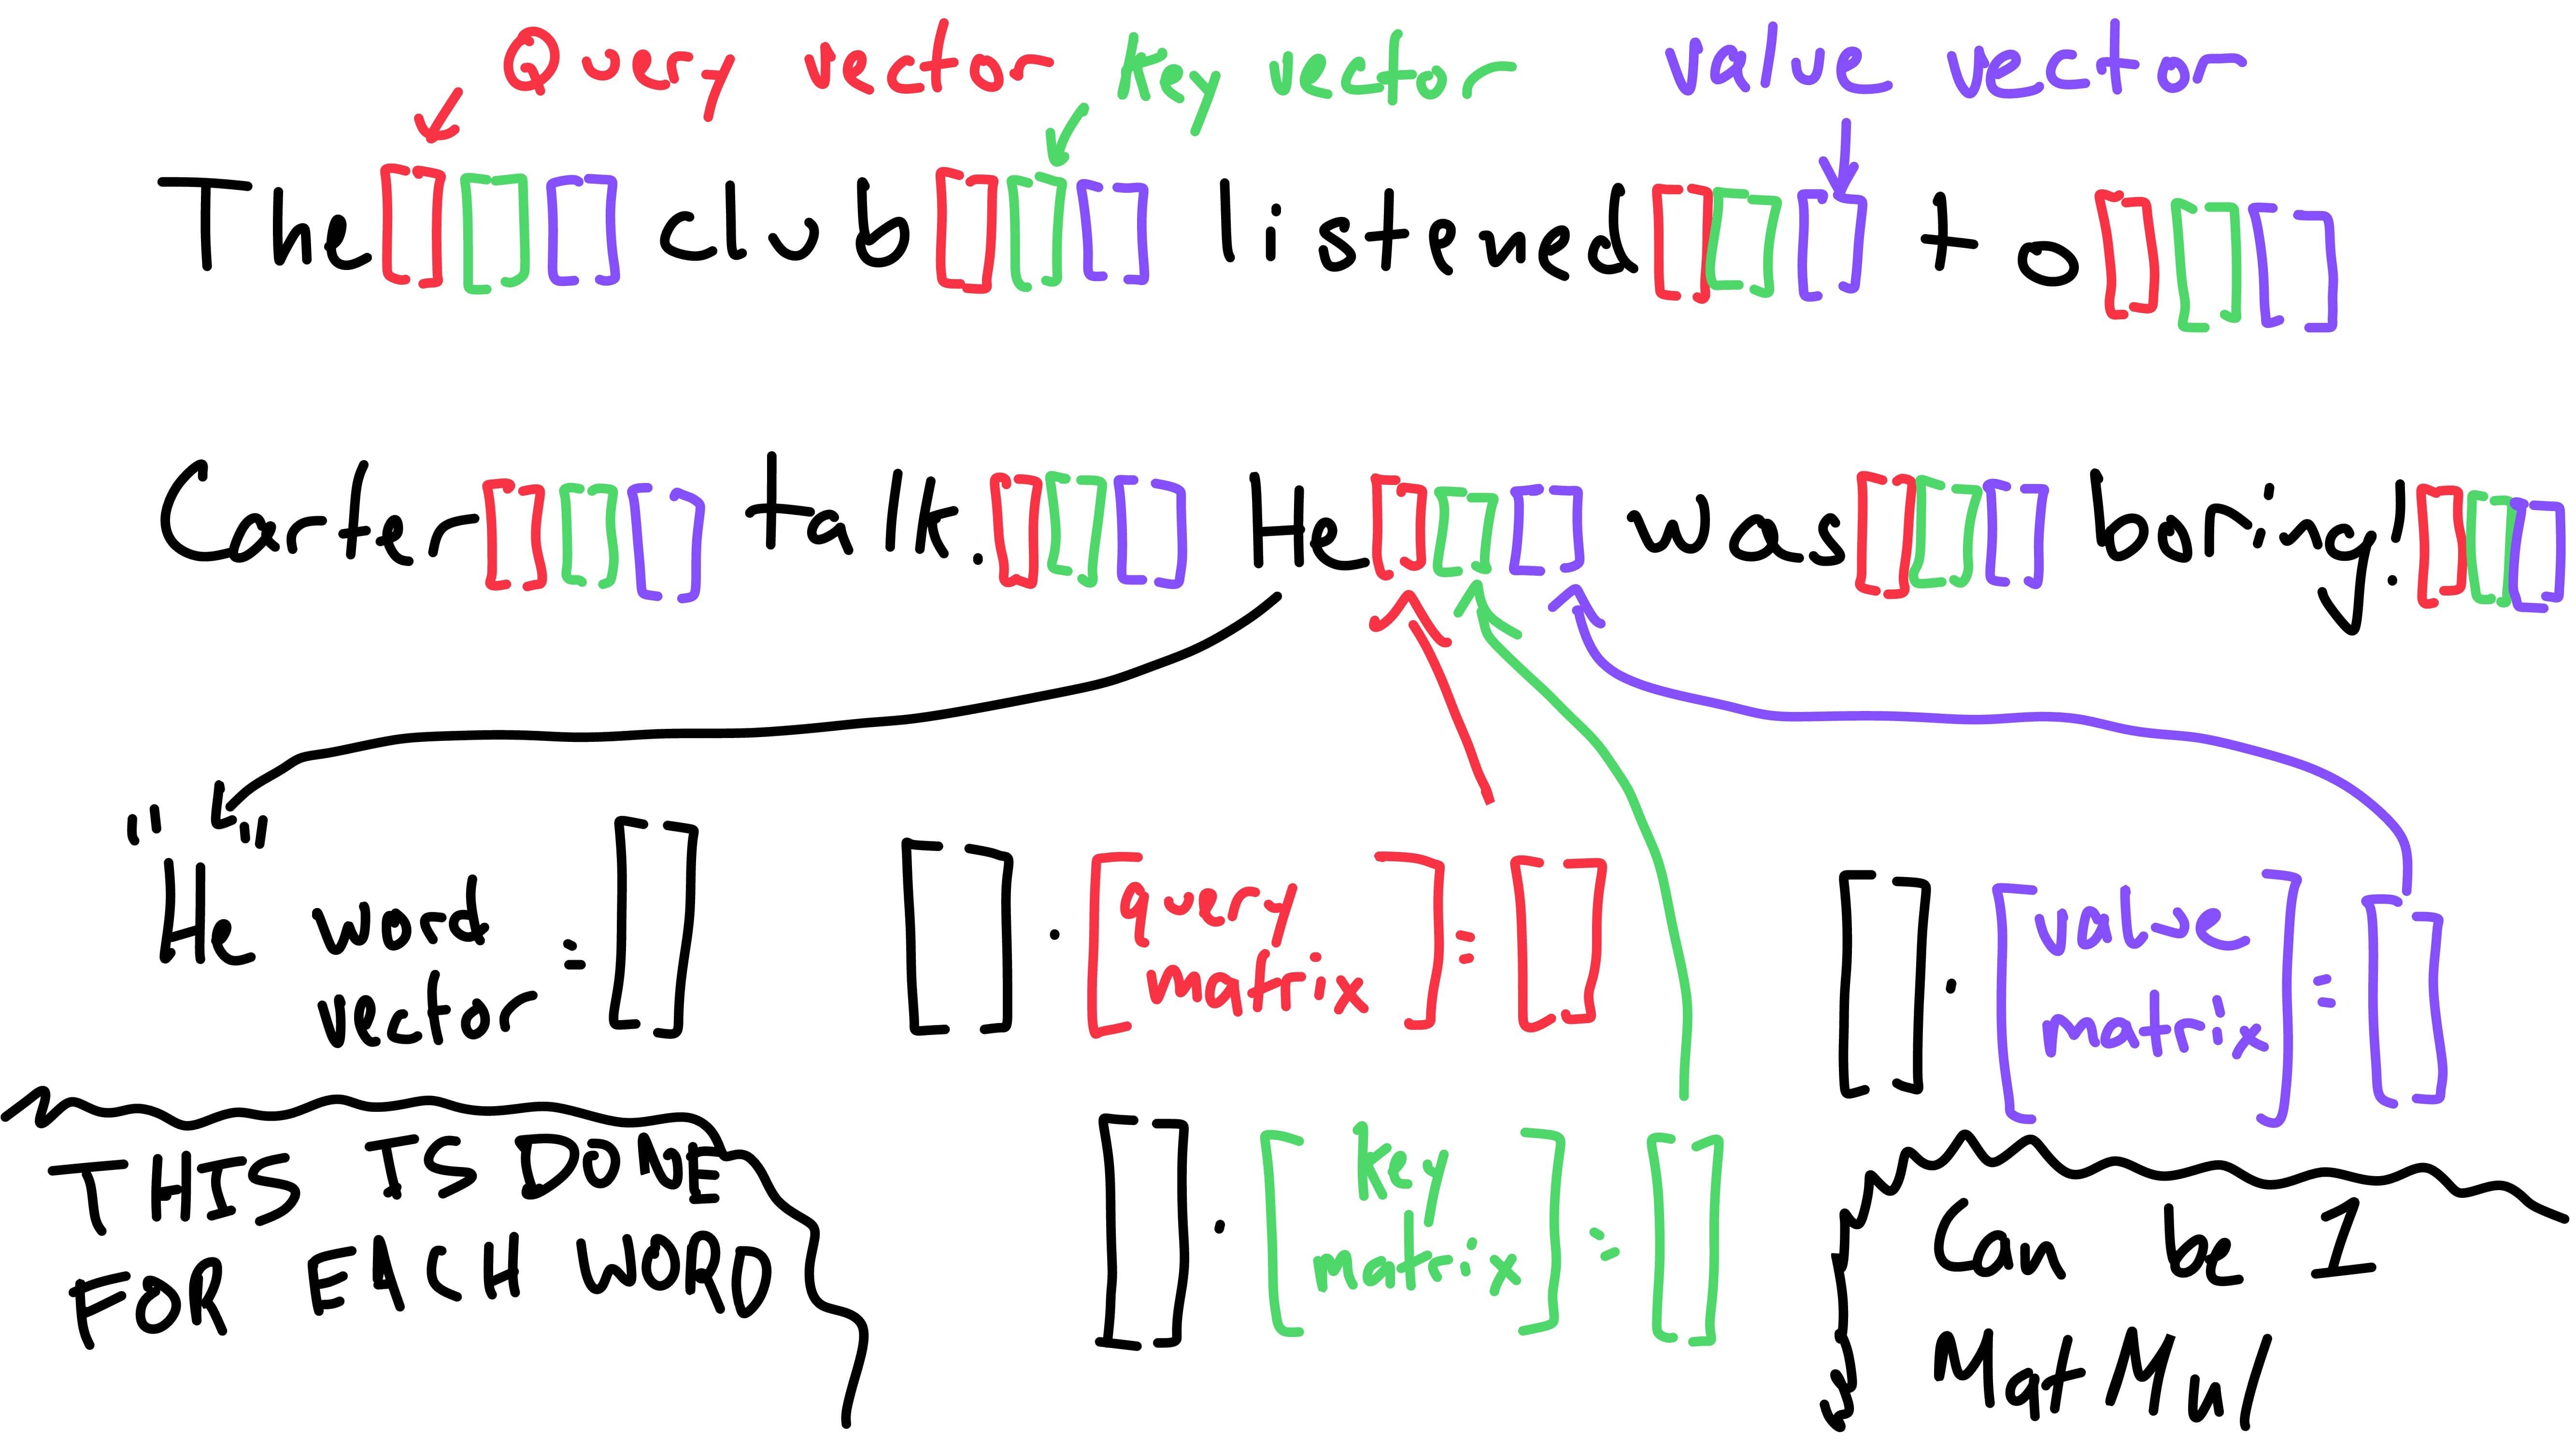 Query vector Key vector value vector
The[][][] club[][][] listened[][][] to[][][]
Carter[][][] talk.[][][] He[][][] was[][][] boring![][][]
"He" word vector = []
[] · [query matrix] = []
[] · [value matrix] = []
[] · [key matrix] = []
THIS IS DONE
FOR EACH WORD
Can be 1
MatMul